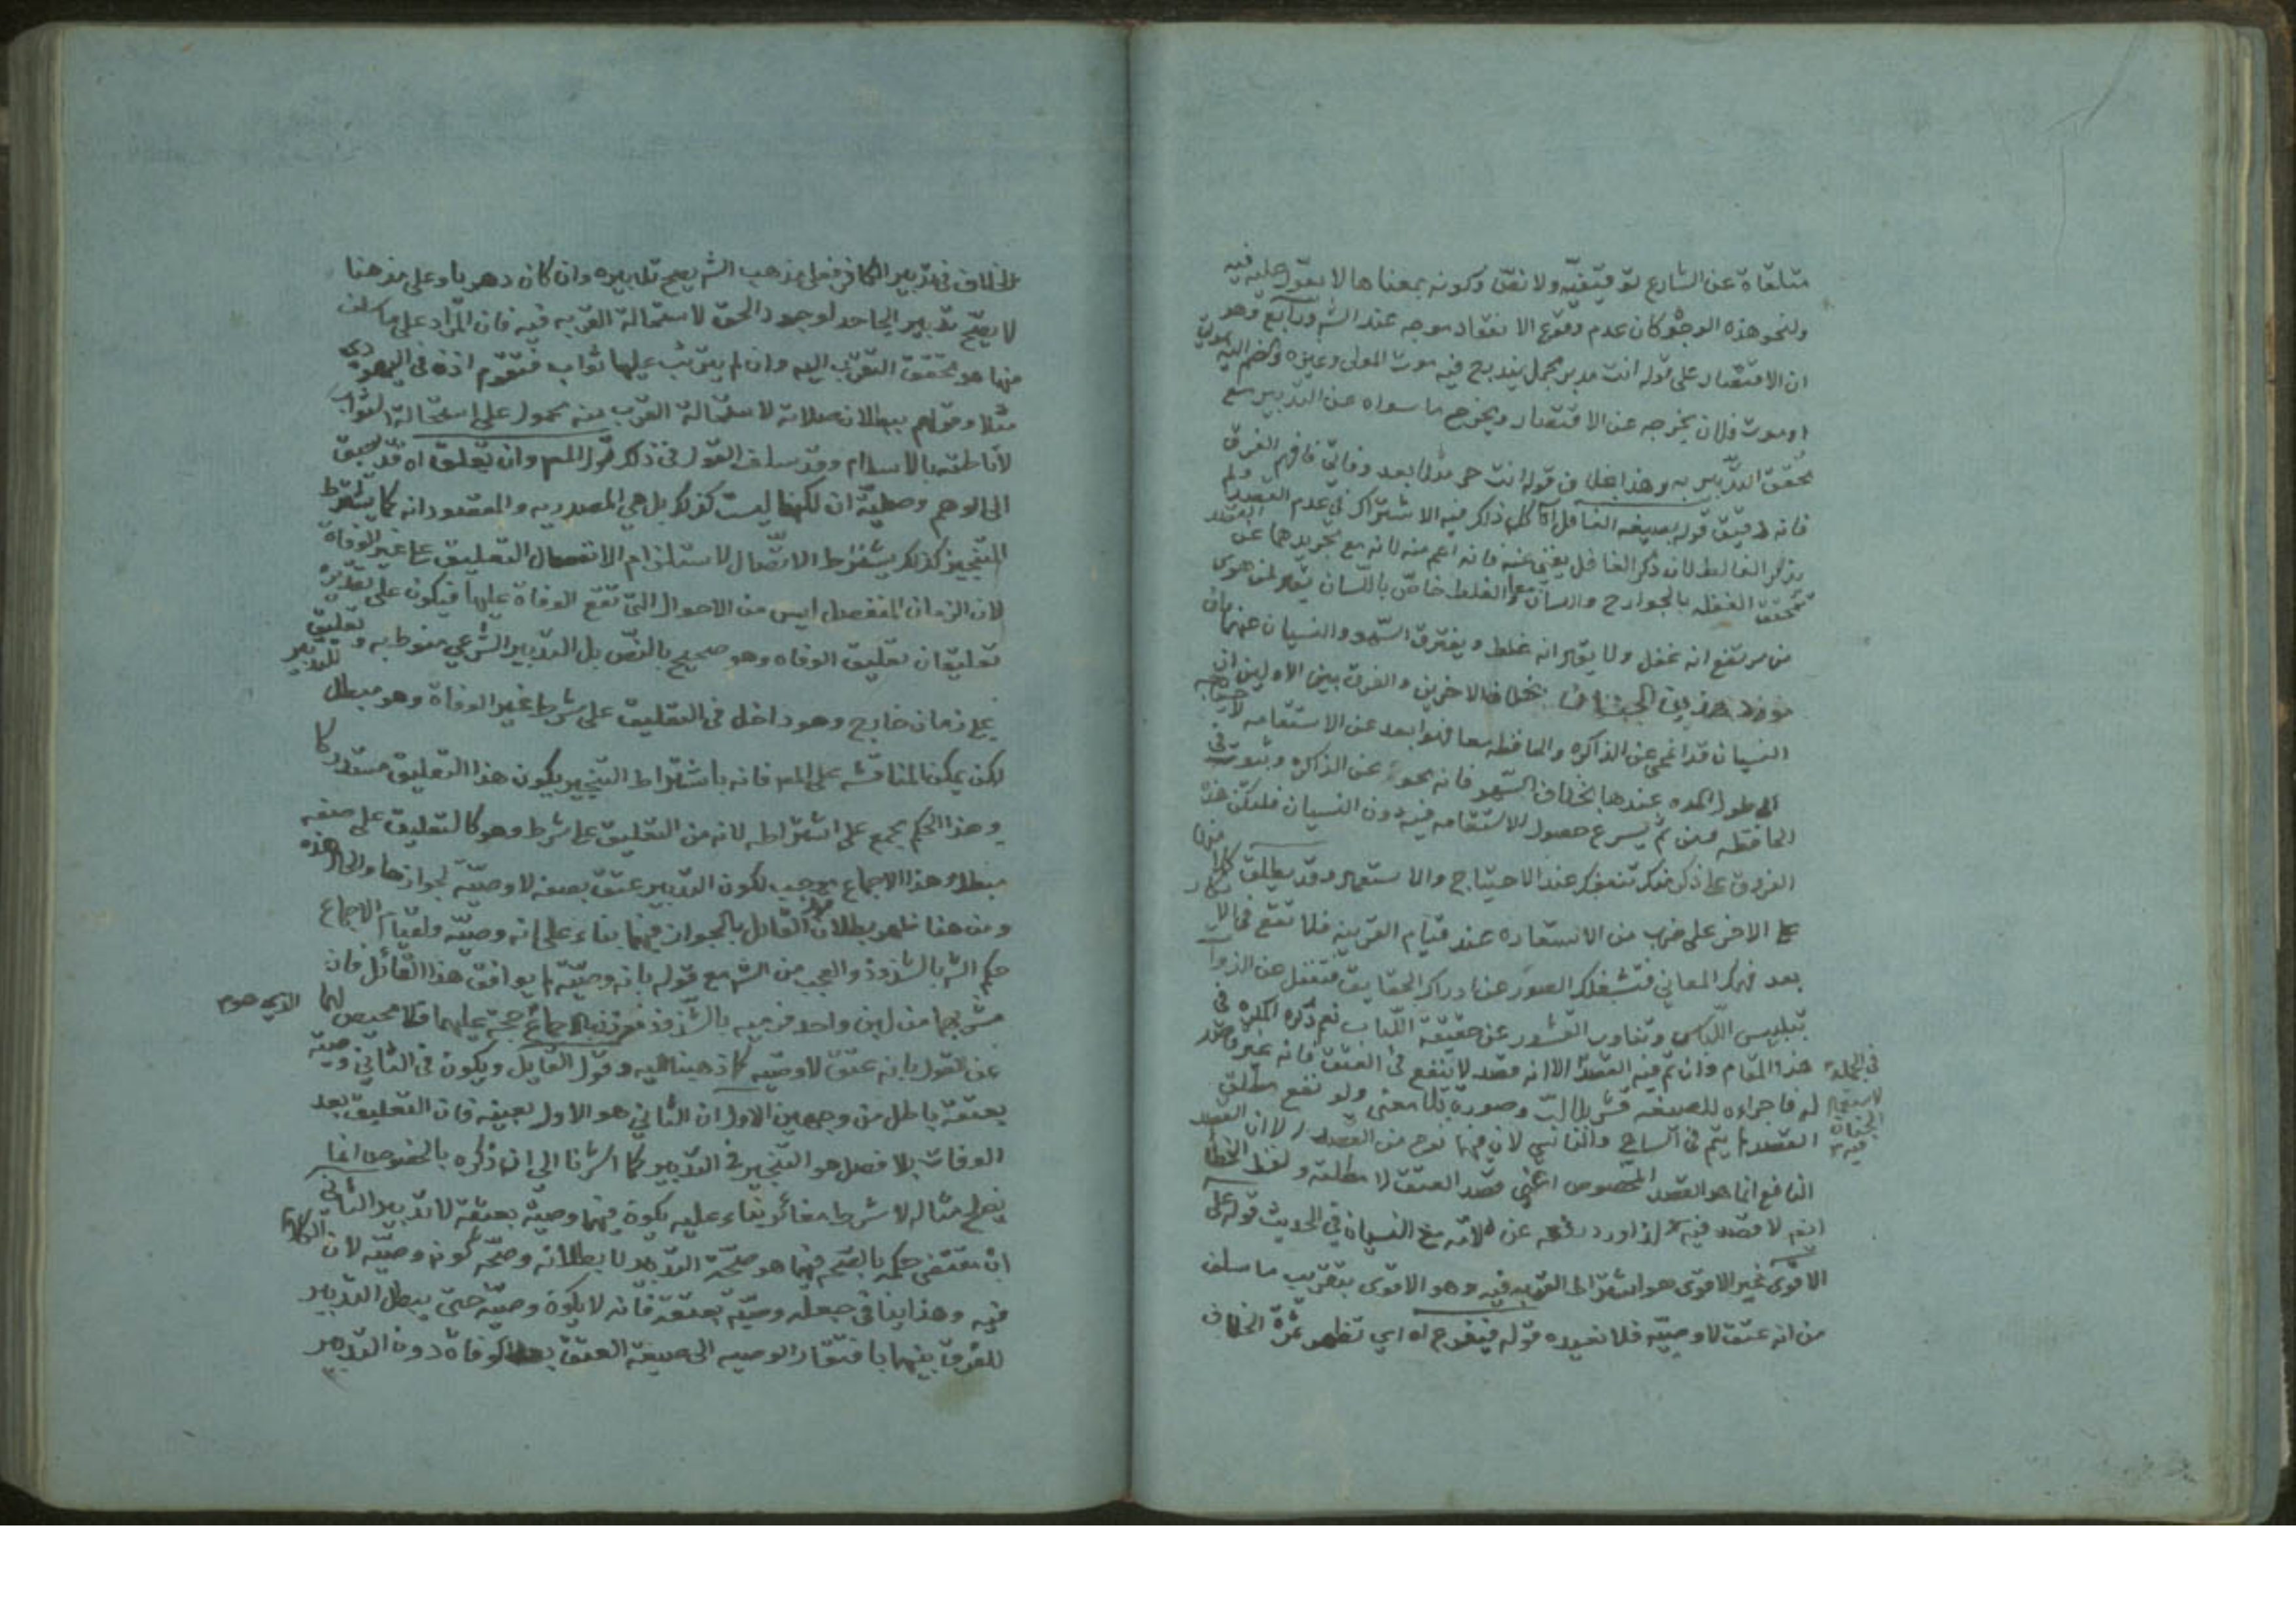 متلقاة عن الشارع توقيفيه ولا نقل وكونه بمعناها لا يعول عليه فيه
ولنحو هذه الوجوه كان عدم وقوع الانعقاد به وجه عند الش ورابع وهو
ان الاقتصار على قوله انت مدبر مجمل يندرج فيه موت المولى وغيره وضم اليه بموتي
او موت فلان يخرجه عن الاقتصار ويخرج ما سواه عن التدبير مع
تحقق التدبير به وهذا بخلاف قوله انت حر مثلا بعد وفاتي فافهم الفرق
فانه دقيق قوله بصيغه الغافل اه كل ذكر فيه الاشتراك في عدم القصد ولم
يذكر الغالط لان ذكر الغافل يغني عنه فانه اعم منه لانه مع تجريدهما عن القصد
تتحقق الغفله بالجوارح واللسان معا والغلط خاص باللسان يقال لمن هوى
من مرتفع انه غفل ولا يقال انه غلط ويفترق السهو والنسيان عنهما بان
بخلاف الاخرين والفرق بين الاولين ان
النسيان قد انمحى عن الذاكره والحافظه معا فهو ابعد عن الاستقامه لاحتياجه
الى طول المده عندها بخلاف السهو فانه محو عن الذاكره وثبوت في
الحافظه فمن ثم يسرع حصول الاستقامه فيه دون النسيان فلتكن هذه
الفروق على ذكر منك تنفعك عند الاحتياج والاستعمال وقد يطلق كل منها
على الاخر على ضرب من الاستعاره عند قيام القرينه فلا تقع في الانكار
بعد فهمك المعاني فتشغلك الصور عن ادراك الحقايق فتغفل عن الذوات
تبلبيس اللباس وتفاوت القشور عن حقيقة اللباب نعم ذكره المكره في
هذا المقام وان تم فيه القصد الا انه قصد لا ينفع في العتق فانه غير قاصد
في الجملة
له فاجراءه للصيغه قشر بلا لب وصورة بلا معنى ولو نفع مطلق
القصد لم يتم في الساهي والناسي لان فيهما نوع من القصد الا ان القصد
النافع انما هو القصد المخصوص اعني قصد العتق لا مطلقه ولفظ الخطا
اعم لا قصد فيه لذا ورد رفعه عن الامه مع النسيان في الحديث قوله على
الاقوى غير الاقوى هو اشتراط القربه فيه وهو الاقوى بتقريب ما سلف
من انه عتق لا وصيه فلا نعيده قوله فيتفرع اه اي تظهر ثمرة الخلاف
للخلاف في تدبير الكافر فعلى مذهب الش يصح تدبيره وان كان دهريا وعلى مذهبنا
لا يصح تدبير الجاحد لوجود الحق لاستحالة القربه فيه فان المراد على ما سلف
منها هو تحقق التقرب اليه وان لم يترتب عليها ثواب فتقوم اذن في اليهودي
مثلا وقولهم ببطلان صلاته لاستحالة القرب منه محمول على استحالة الثواب
لاناطته بالاسلام وقد سلف القول في ذلك قول المص وان تعلق اه قد يسبق
الى الوهم وصلية ان لكنها ليست كذلك بل هي المصدريه والمقصود انه كما يشترط
التنجيز كذلك يشترط الاتصال لاستلزام الانفصال التعليق على غير الوفاة
لان الزمان المنفصل ليس من الاحوال التي تقع الوفاة عليها فيكون على تقديره
تعليقان تعليق الوفاه وهو صحيح بالنص بل التدبير الشرعي منوط به وتعليق
على زمان خارج وهو داخل في التعليق على شرط غير الوفاة وهو مبطل للتدبير
لكن يمكن المناقشه على المص فانه باشتراط التنجيز يكون هذا التعليق مستدركا
وهذا الحكم مجمع على اشتراطه لانه من التعليق على شرط وهو كالتعليق على صفه
مبطل وهذا الاجماع موجب لكون التدبير عتق بصفه لا وصيه لجوازها والحال هذه
ومن هنا ظهر بطلان قول القائل بالجواز فيهما بناء على انه وصيه ولقيام الاجماع
حكم الش بالشذوذ والعجب من الش مع قوله بانه وصيه لم يوافق هذا القائل فان
مشربهما من لبن واحد فرميه بالشذوذ الاجماع حجة عليهما فلا محيص لهما
الذي هو
عن القول بانه عتق لا وصيه كما ذهبنا اليه وقول القايل ويكون في الثاني وصيه
بعتقه باطل من وجهين الاول ان الثاني هو الاول بعينه فان التعليق بعد
الوفات بلا فصل هو التنجيز في التدبير كما اشرنا الى ان ذكره بالخصوص انما
يصلح مثالا لا شرط مغائر بناء عليه يكون فيهما وصية بعتقه لا تدبير الثاني
ان مقتضى حكمه بالصحه فيهما هو صحة التدبير لا بطلانه وصحة كونه وصيه لان الكلام
فيه وهذا ينافي جعله وصية بعتقه فانه لا يكون وصية حتى يبطل التدبير
للفرق بينهما بافتقار الوصيه الى صيغة العتق بعد الوفاة دون التدبير